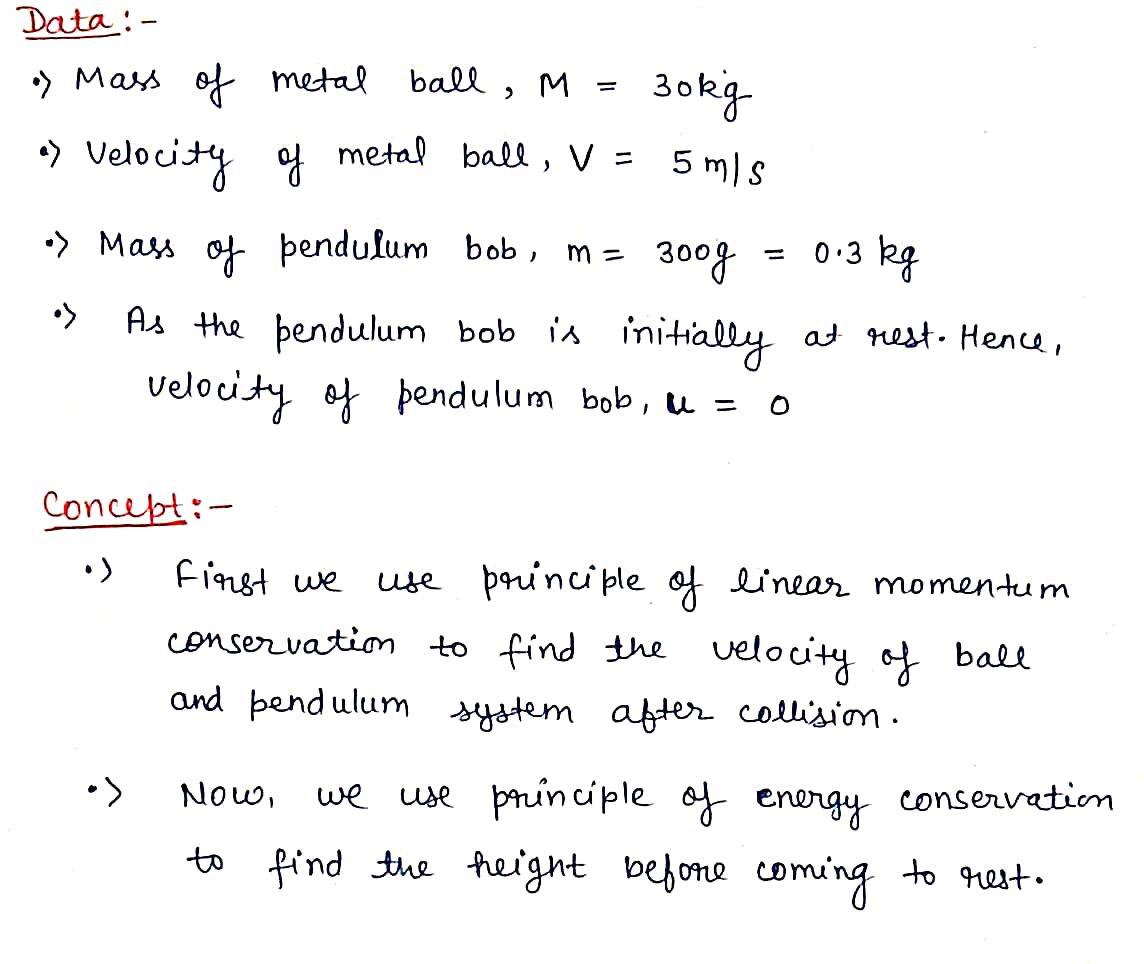 Data :-
•> Mass of metal ball, M = 30kg
•> Velocity of metal ball, V = 5 m/s
•> Mass of pendulum bob, m = 300g = 0.3 kg
•> As the pendulum bob is initially at rest. Hence,
velocity of pendulum bob, u = 0
Concept :-
•> First we use principle of linear momentum
conservation to find the velocity of ball
and pendulum system after collision.
•> Now, we use principle of energy conservation
to find the height before coming to rest.